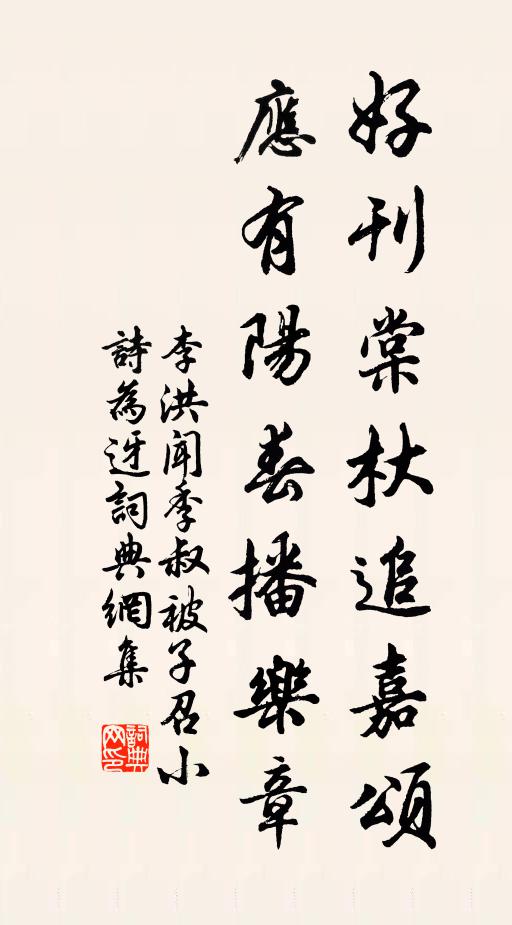 好刊棠杕追嘉頌
應有陽春播樂章
李洪聞季叔被子召小
詩為迓詞典網集
詞典网印